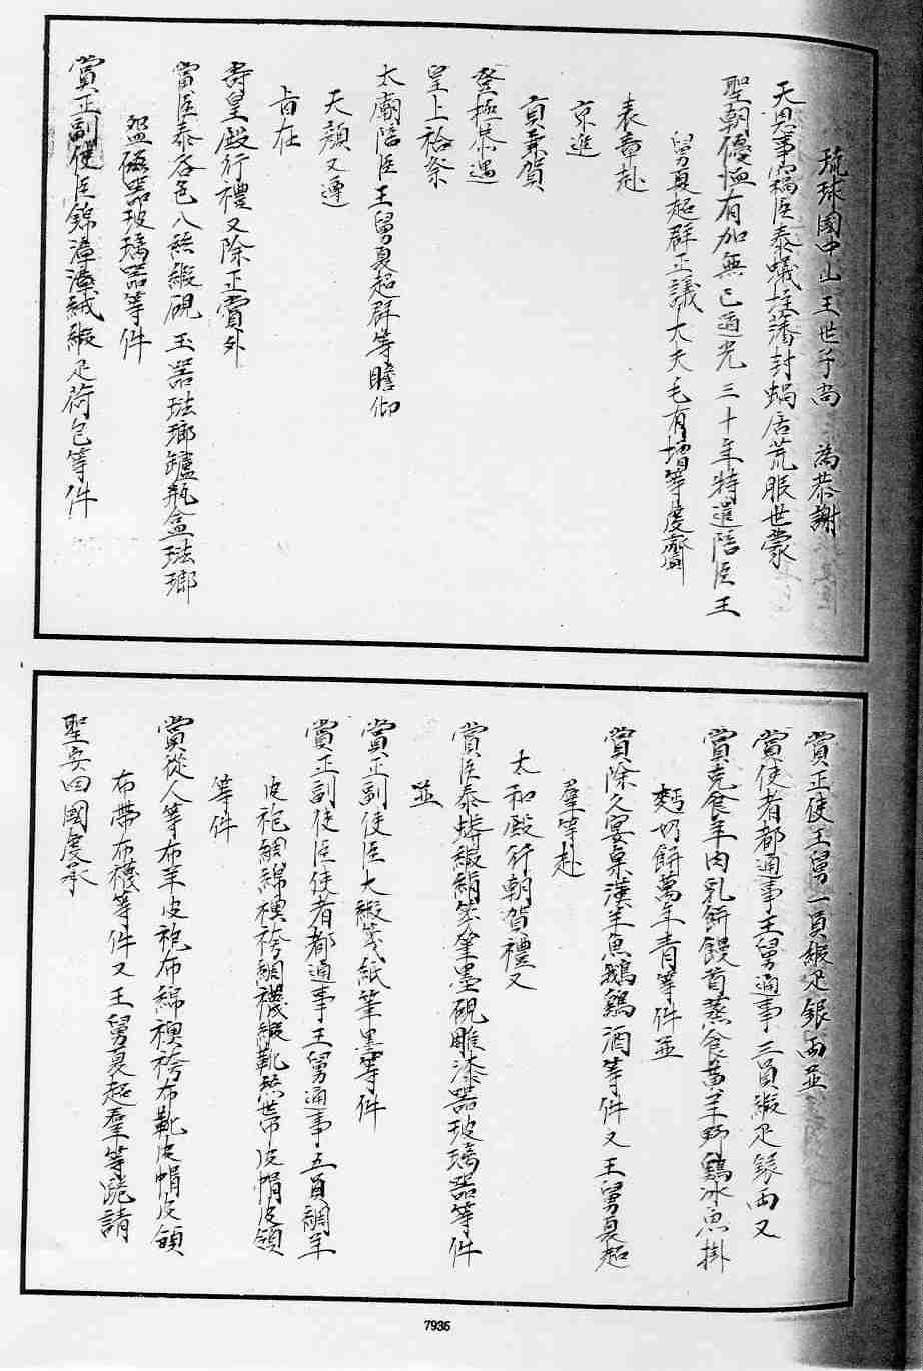 琉球國中山王世子尚 為恭謝
天恩事竊臣泰蟻垤藩封蝸居荒服世蒙
聖朝優恤有加無已道光三十年特遣陪臣王
舅夏超群正議大夫毛有增等虔齎
表章赴
京進
貢兼賀
登極恭遇
皇上祫祭
太廟陪臣王舅夏超群等瞻仰
天顏又遵
旨在
壽皇殿行禮又除正賞外
賞臣泰各色八絲緞硯玉器琺瑯罏瓶盒琺瑯
盌磁器玻璃器等件
賞正副使臣錦漳漳絨緞疋荷包等件
賞正使王舅一員緞疋銀兩並
賞使者都通事王舅通事三員緞疋銀兩又
賞克食羊肉乳餅饅首蒸食黃羊野鷄冰魚掛
麵奶餅萬年青等件並
賞除夕宴桌漢羊魚鵝鷄酒等件又王舅夏超
羣等赴
太和殿行朝賀禮又
賞臣泰蟒緞絹箋筆墨硯雕漆器玻璃器等件
並
賞正副使臣大緞箋紙筆墨等件
賞正副使臣使者都通事王舅通事五員綢羊
皮袍綢綿襖袴綢襪緞靴絲帶皮帽皮領
等件
賞從人等布羊皮袍布綿襖袴布靴皮帽皮領
布帶布襪等件又王舅夏超羣等跪請
聖安回國虔承
7935